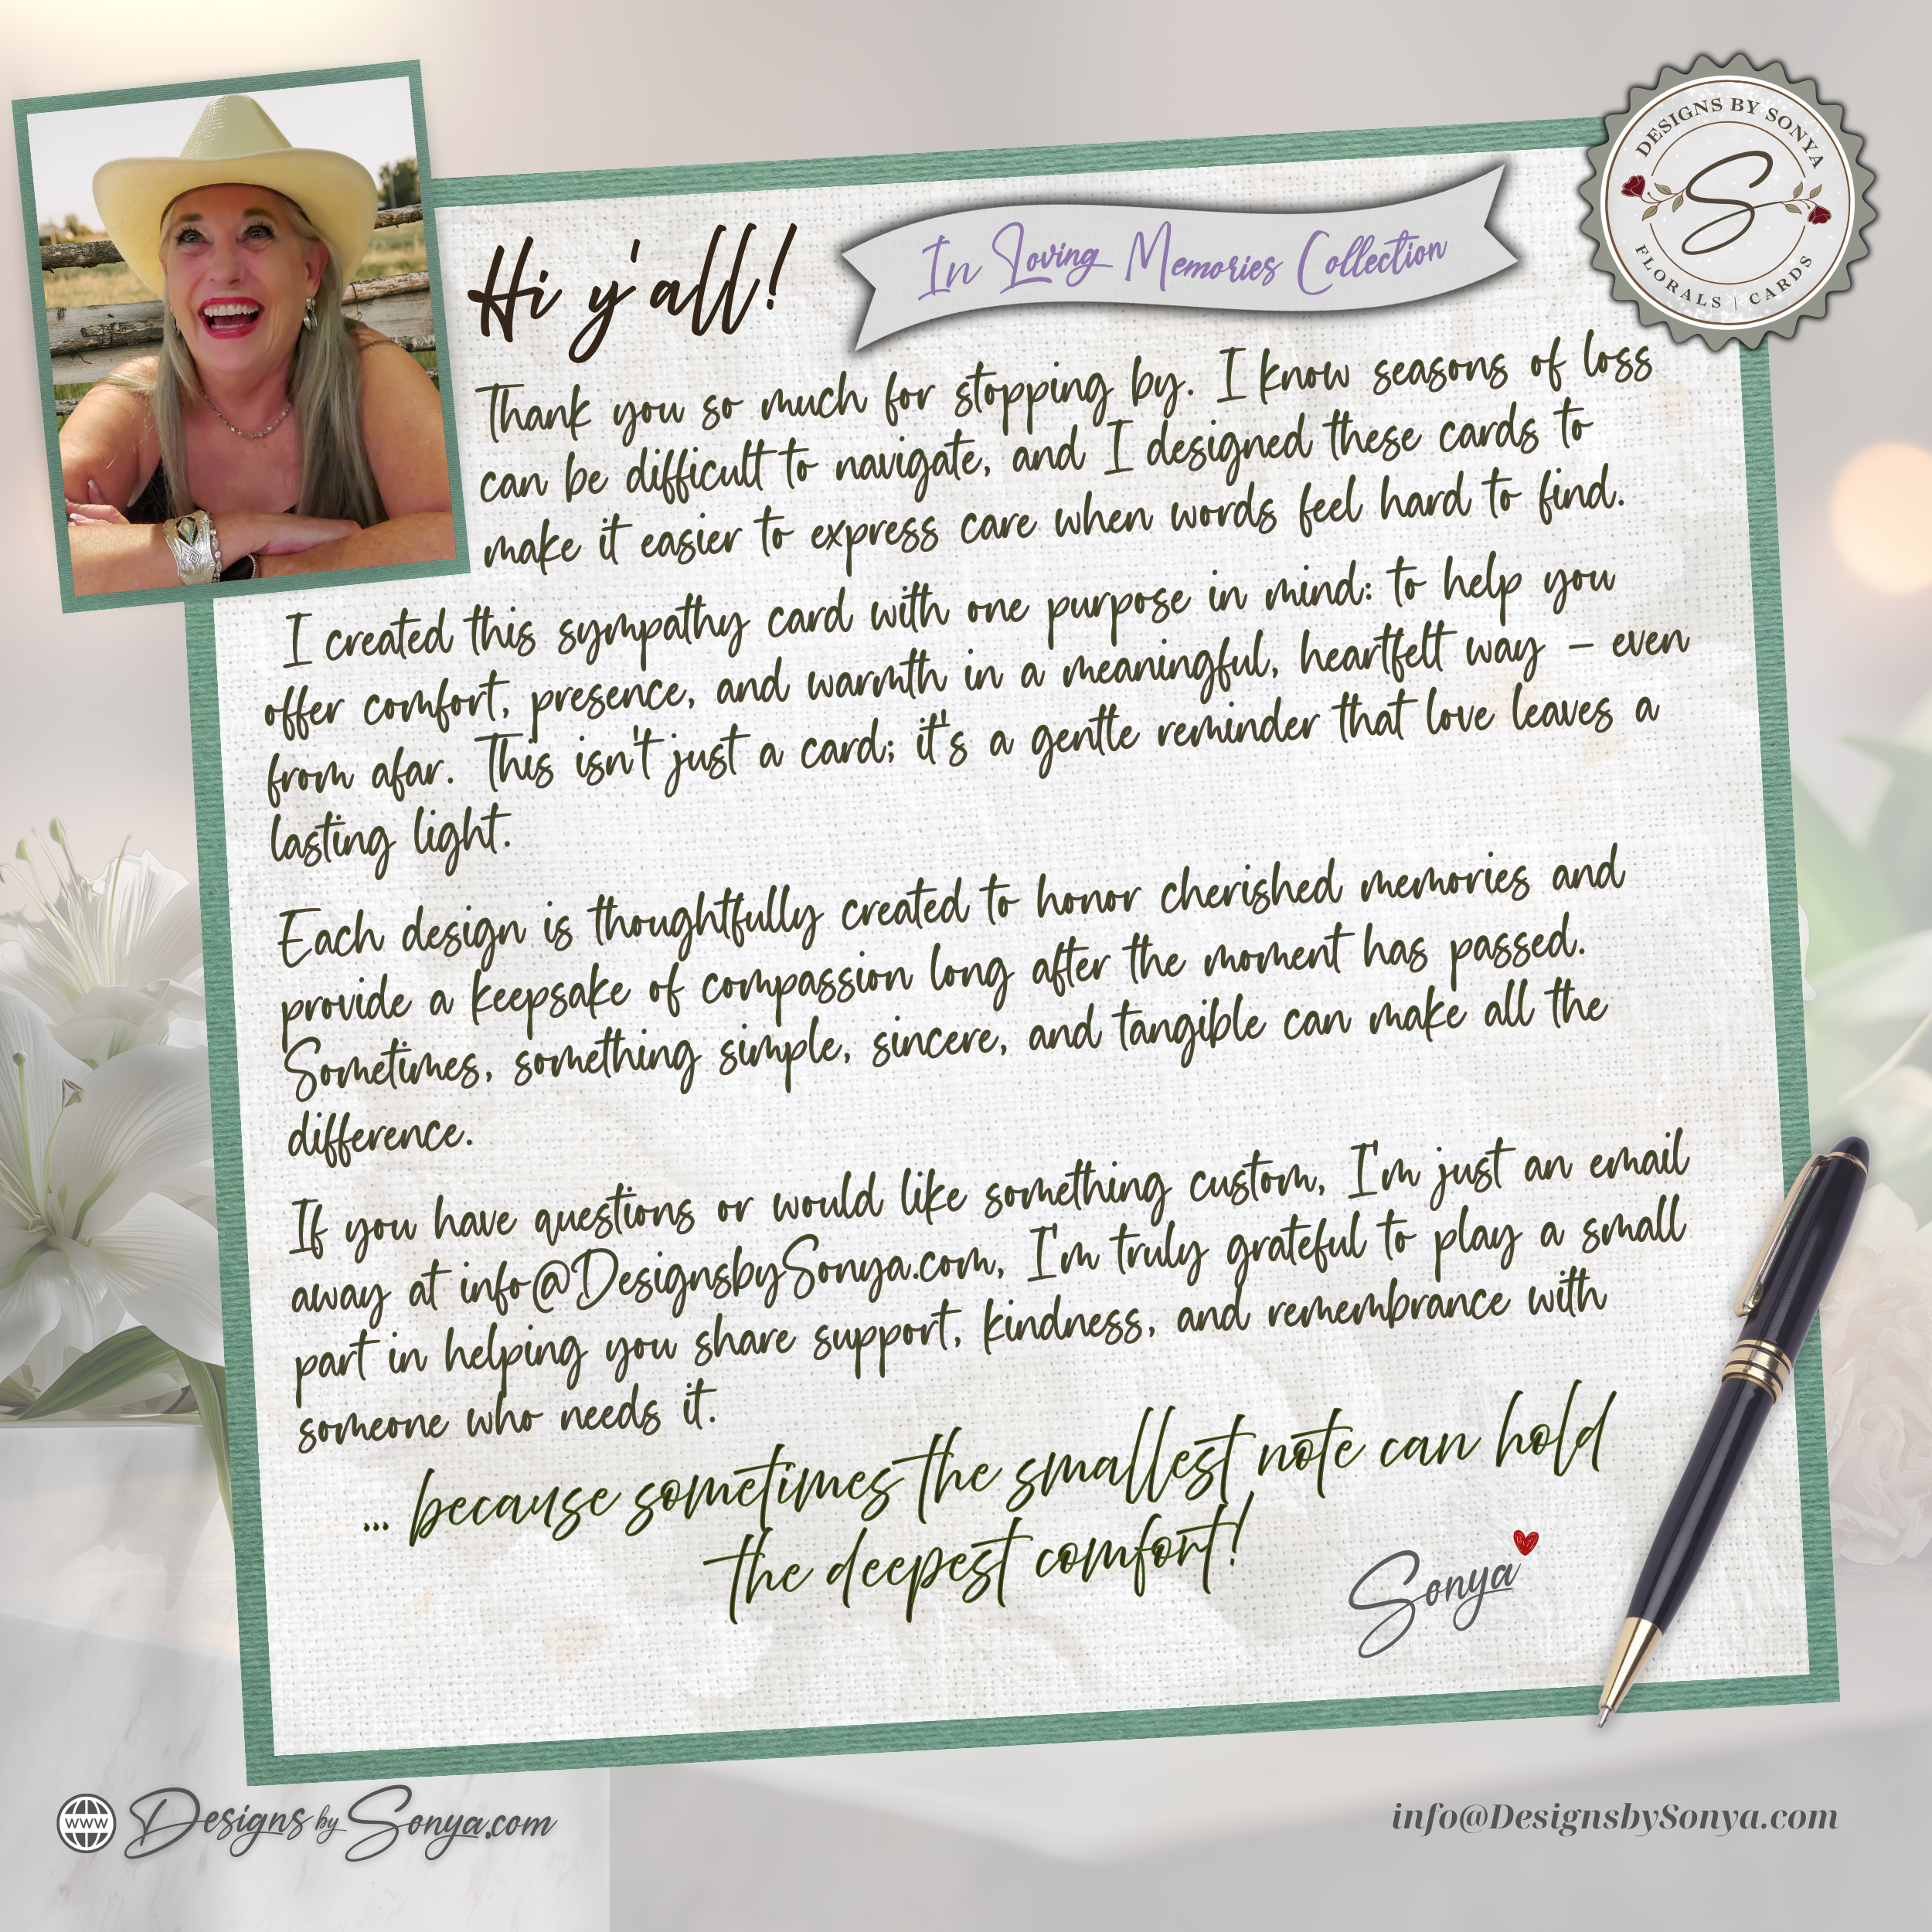 DESIGNS BY SONYA
S
FLORALS | CARDS
In Loving Memories Collection
Hi y'all!
Thank you so much for stopping by. I know seasons of loss
can be difficult to navigate, and I designed these cards to
make it easier to express care when words feel hard to find.
I created this sympathy card with one purpose in mind: to help you
offer comfort, presence, and warmth in a meaningful, heartfelt way – even
from afar. This isn't just a card; it's a gentle reminder that love leaves a
lasting light.
Each design is thoughtfully created to honor cherished memories and
provide a keepsake of compassion long after the moment has passed.
Sometimes, something simple, sincere, and tangible can make all the
difference.
If you have questions or would like something custom, I'm just an email
away at info@DesignsbySonya.com, I'm truly grateful to play a small
part in helping you share support, kindness, and remembrance with
someone who needs it.
... because sometimes the smallest note can hold
the deepest comfort!
Sonya
www DesignsbySonya.com
info@DesignsbySonya.com